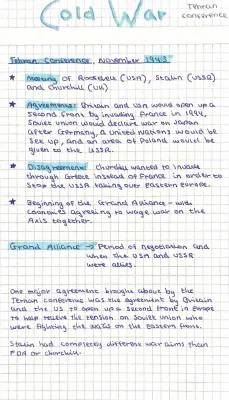 Cold War
Tehran
conference
Tehran Conference, November 1943
★ Meeting of Roosevelt (USA), Stalin (USSR)
and Churchill (UK)
★ Agreements: Britain and USA would open up a
second front by invading France in 1944,
Soviet Union would declare war on Japan
after Germany, a United Nations would be
set up, and an area of Poland would be
given to the USSR.
★ Disagreement: Churchill wanted to invade
through Greece instead of France in order to
stop the USSR taking over eastern Europe.
★ Beginning of the Grand Alliance - with
countries agreeing to wage war on the
Axis together.
Grand Alliance → Period of negotiation and
when the USA and USSR
were allies.
One major agreement brought about by the
Tehran conference was the agreement by Britain
and the US to open up a second front in Europe
to help relieve the tension on Soviet Union who
were fighting the Nazis on the Eastern front.
Stalin had completely different war aims than
FDR or Churchill.